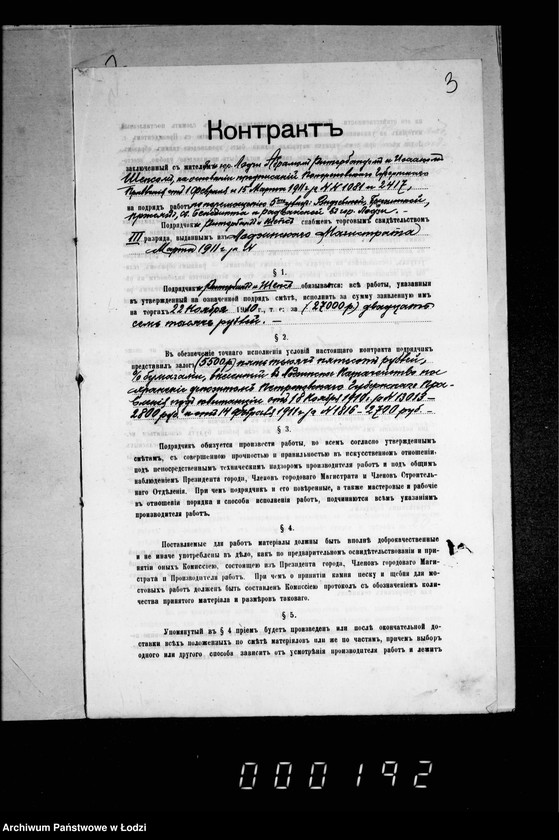 3
Контрактъ
заключенный съ жителями гор. Лодзи Абрамомъ и
Шепсомъ, на основаніи предписаній Петроковскаго Губернскаго
Правленія отъ 1 Февраля и 15 Марта 1911 г. за №№ 1081 и 2417,
на подрядъ работъ
и Радванской въ гор. Лодзи. —
Подрядчикъ и снабженъ торговымъ свидѣтельствомъ
III разряда, выданнымъ изъ Лодзинскаго Магистрата
Марта 1911 г. за №
§ 1.
Подрядчикъ и обязывается: всѣ работы, указанныя
въ утвержденный на означенной подрядъ смѣтѣ, исполнить за сумму заявленную имъ
на торгахъ 22 Ноября 1910 г., т. е. за (27000 р) двадцать
семь тысячъ рублей. —
§ 2.
Въ обезпеченіе точнаго исполненія условій настоящаго контракта подрядчикъ
представилъ залогъ (5500 р) пять тысячъ пятьсотъ рублей,
% бумагами, въ Казначейство
Петроковскаго Губернскаго Пра-
вленія квитанціи отъ 18 Ноября 1910 г. за № 13013 —
2800 руб. и отъ 14 Февраля 1911 г. за № 1816 — 2700 руб. —
§ 3.
Подрядчикъ обязуется произвести работы, во всемъ согласно утвержденнымъ
смѣтамъ, съ совершенною прочностью и правильностью въ искусственномъ отношеніи
подъ непосредственнымъ техническимъ надзоромъ производителя работъ и подъ общимъ
наблюденіемъ Президента города, Членовъ городоваго Магистрата и Членовъ Строитель-
наго Отдѣленія. При чемъ подрядчикъ и его повѣренные, а также мастеровые и рабочіе
въ отношеніи порядка и способа исполненія работъ, подчиняются всѣмъ указаніямъ
производителя работъ.
§ 4.
Поставляемые для работъ матеріалы должны быть вполнѣ доброкачественные
и не иначе употреблены въ дѣло, какъ по предварительномъ освидѣтельствованіи и при-
нятіи оныхъ Комиссіею, состоящею изъ Президента города, Членовъ городоваго Маги-
страта и Производителя работъ. При чемъ о принятіи камня песку и щебня для мо-
стовыхъ работъ долженъ быть составленъ Комиссіею протоколъ съ обозначеніемъ коли-
чества принятого матеріала и размѣровъ таковаго.
§ 5.
Упомянутый въ § 4 пріемъ будетъ произведенъ или послѣ окончательной до-
ставки всѣхъ положенныхъ по смѣтѣ матеріаловъ или же по частямъ, причемъ выборъ
одного или другого способа зависитъ отъ усмотрѣнія производителя работъ и лежитъ
000192
Archiwum Państwowe w Łodzi